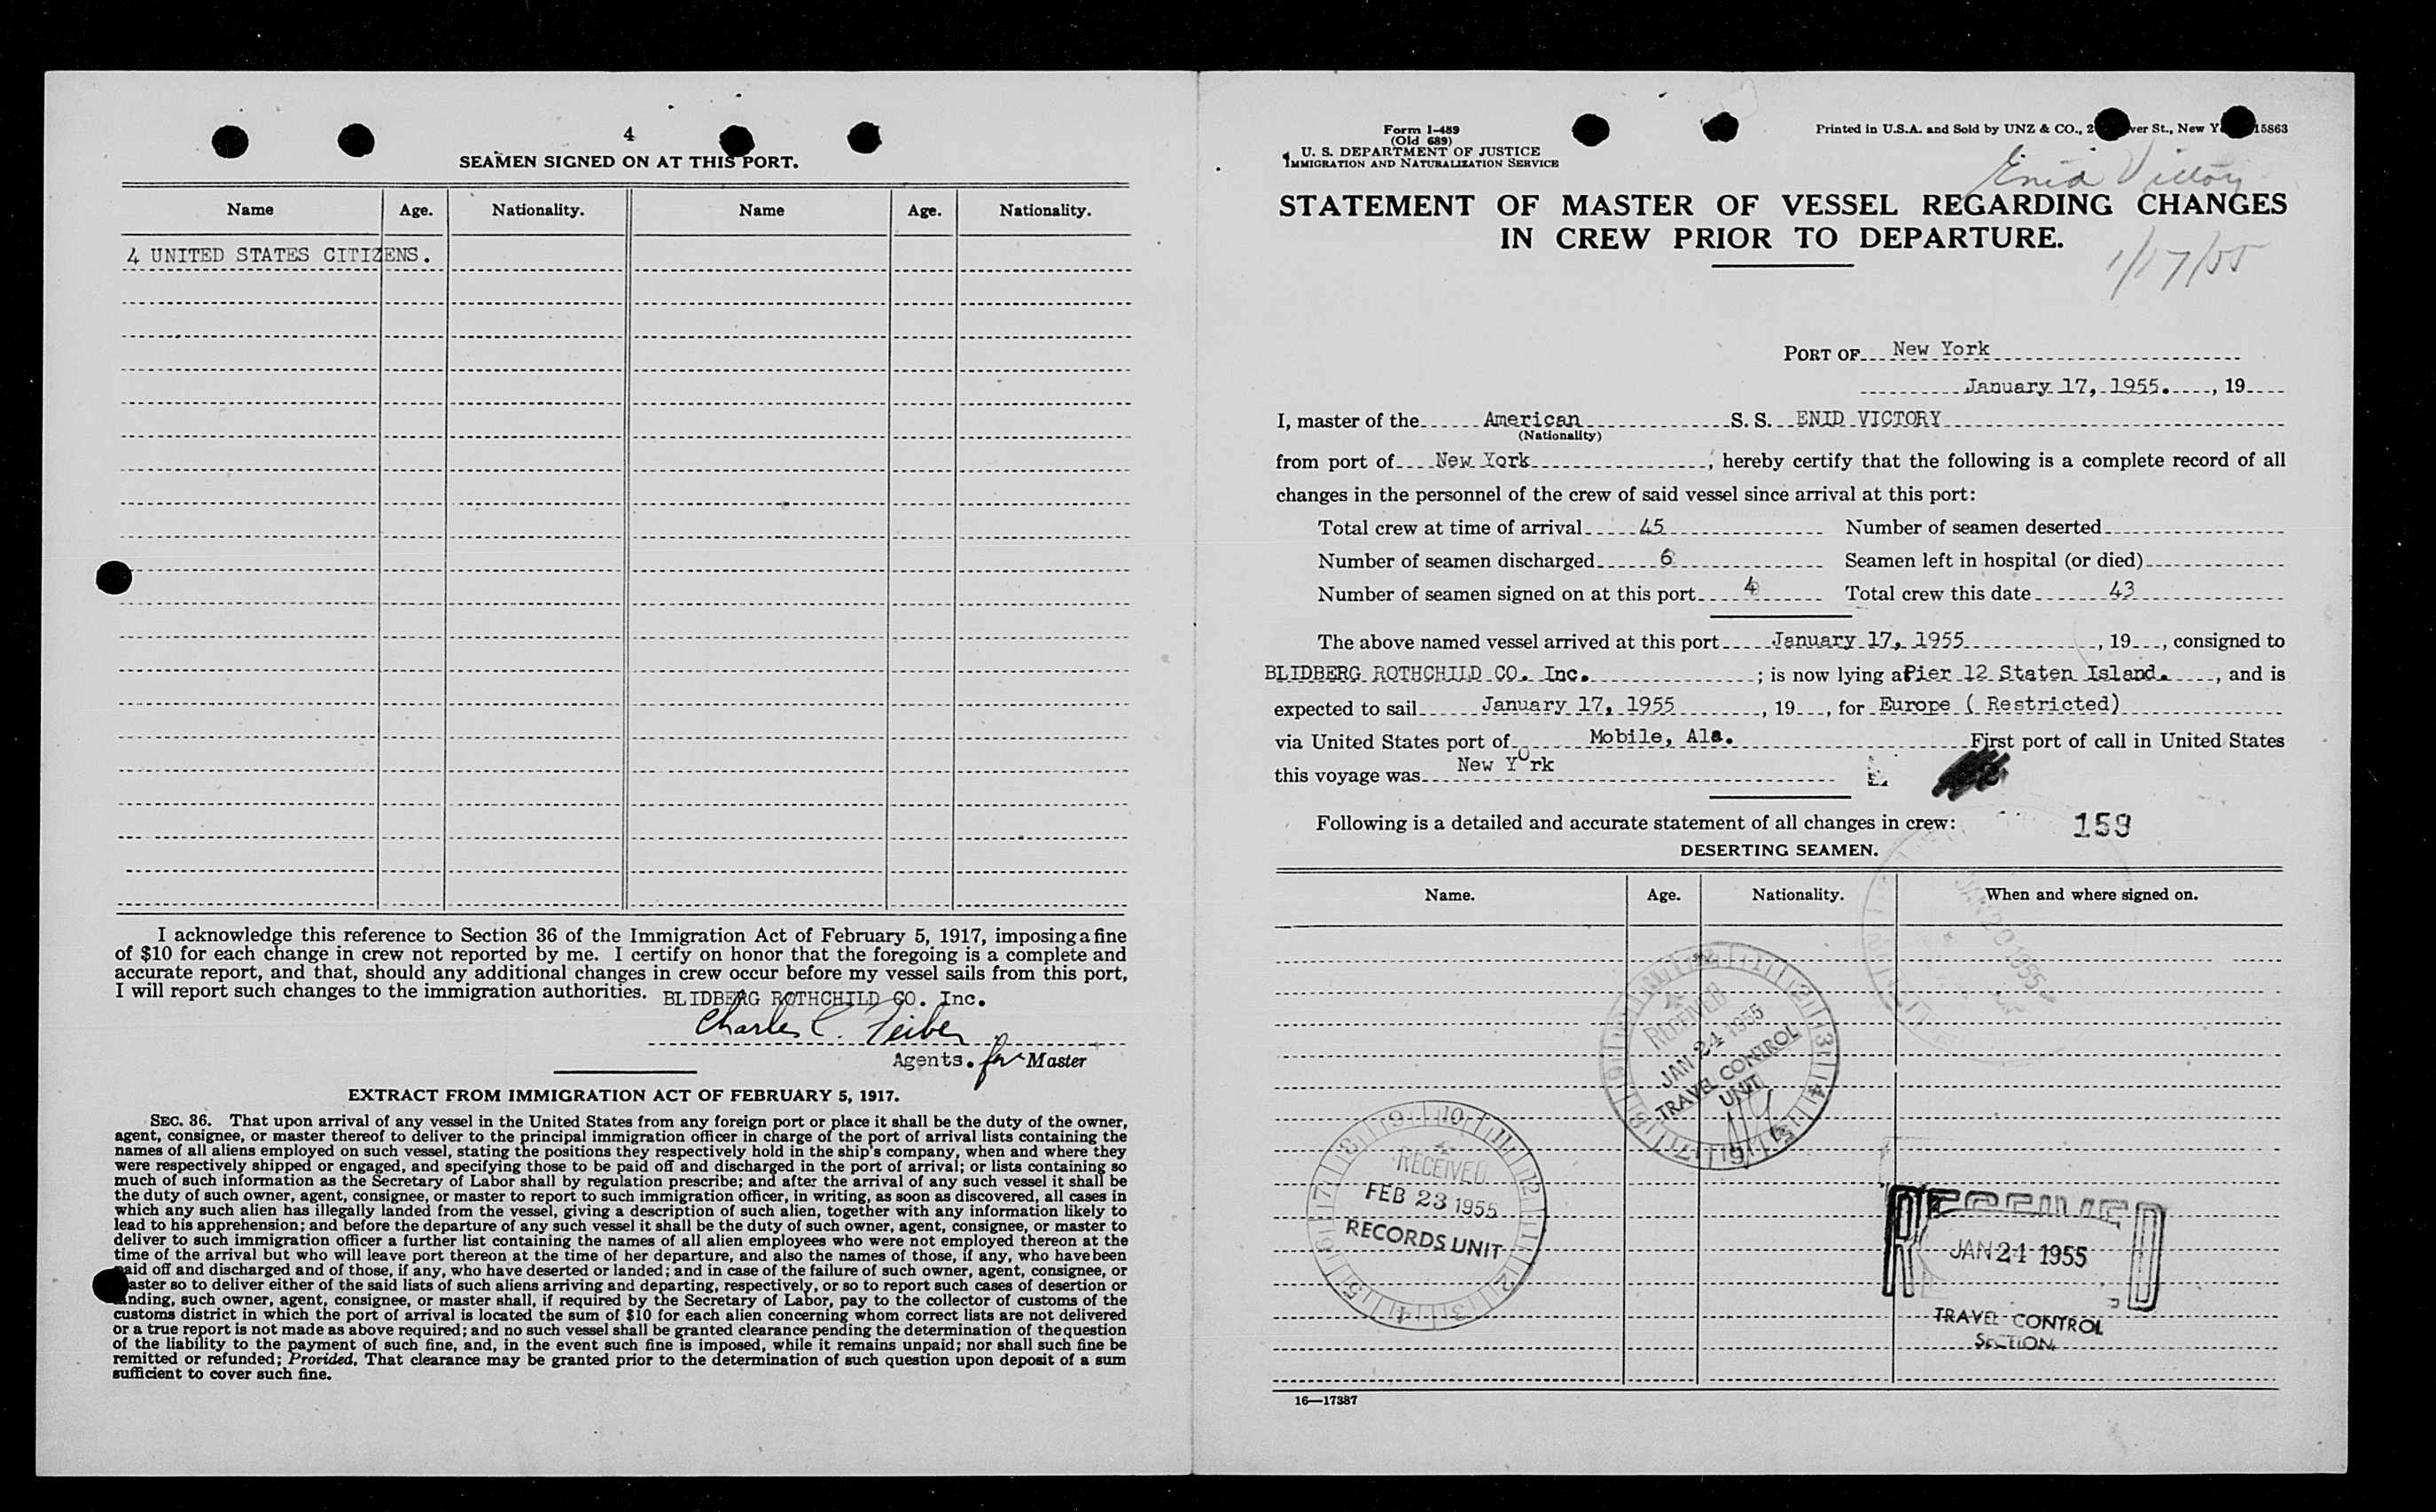 4
SEAMEN SIGNED ON AT THIS PORT.
Name Age. Nationality. Name Age. Nationality.
4 UNITED STATES CITIZENS.
I acknowledge this reference to Section 36 of the Immigration Act of February 5, 1917, imposing a fine
of $10 for each change in crew not reported by me. I certify on honor that the foregoing is a complete and
accurate report, and that, should any additional changes in crew occur before my vessel sails from this port,
I will report such changes to the immigration authorities. BLIDBERG ROTHCHILD CO. Inc.
Charles C.
Agents. for Master
EXTRACT FROM IMMIGRATION ACT OF FEBRUARY 5, 1917.
SEC. 36. That upon arrival of any vessel in the United States from any foreign port or place it shall be the duty of the owner,
agent, consignee, or master thereof to deliver to the principal immigration officer in charge of the port of arrival lists containing the
names of all aliens employed on such vessel, stating the positions they respectively hold in the ship's company, when and where they
were respectively shipped or engaged, and specifying those to be paid off and discharged in the port of arrival; or lists containing so
much of such information as the Secretary of Labor shall by regulation prescribe; and after the arrival of any such vessel it shall be
the duty of such owner, agent, consignee, or master to report to such immigration officer, in writing, as soon as discovered, all cases in
which any such alien has illegally landed from the vessel, giving a description of such alien, together with any information likely to
lead to his apprehension; and before the departure of any such vessel it shall be the duty of such owner, agent, consignee, or master to
deliver to such immigration officer a further list containing the names of all alien employees who were not employed thereon at the
time of the arrival but who will leave port thereon at the time of her departure, and also the names of those, if any, who have been
paid off and discharged and of those, if any, who have deserted or landed; and in case of the failure of such owner, agent, consignee, or
master so to deliver either of the said lists of such aliens arriving and departing, respectively, or so to report such cases of desertion or
landing, such owner, agent, consignee, or master shall, if required by the Secretary of Labor, pay to the collector of customs of the
customs district in which the port of arrival is located the sum of $10 for each alien concerning whom correct lists are not delivered
or a true report is not made as above required; and no such vessel shall be granted clearance pending the determination of the question
of the liability to the payment of such fine, and, in the event such fine is imposed, while it remains unpaid; nor shall such fine be
remitted or refunded; Provided, That clearance may be granted prior to the determination of such question upon deposit of a sum
sufficient to cover such fine.
Form I-489
(Old 689)
U. S. DEPARTMENT OF JUSTICE
IMMIGRATION AND NATURALIZATION SERVICE
Printed in U.S.A. and Sold by UNZ & CO., 2 ver St., New Y 15863
Enid Victory
STATEMENT OF MASTER OF VESSEL REGARDING CHANGES
IN CREW PRIOR TO DEPARTURE.
1/17/55
PORT OF New York
January 17, 1955. , 19
I, master of the American S. S. ENID VICTORY
(Nationality)
from port of New York , hereby certify that the following is a complete record of all
changes in the personnel of the crew of said vessel since arrival at this port:
Total crew at time of arrival 45 Number of seamen deserted
Number of seamen discharged 6 Seamen left in hospital (or died)
Number of seamen signed on at this port 4 Total crew this date 43
The above named vessel arrived at this port January 17, 1955 , 19 , consigned to
BLIDBERG ROTHCHILD CO. Inc. ; is now lying at Pier 12 Staten Island. , and is
expected to sail January 17, 1955 , 19 , for Europe ( Restricted)
via United States port of Mobile, Ala. First port of call in United States
this voyage was New York
Following is a detailed and accurate statement of all changes in crew:
159
DESERTING SEAMEN.
Name. Age. Nationality. When and where signed on.
JAN 20 1955
RECEIVED
JAN 24 1955
TRAVEL CONTROL
UNIT
RECEIVED
FEB 23 1955
RECORDS UNIT
RECEIVED
JAN 24 1955
TRAVEL CONTROL
SECTION
16—17387